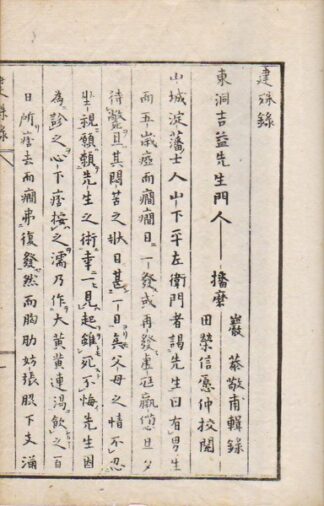 建殊錄
東洞吉益先生門人
播磨
巖 恭敬甫輯錄
田榮信愿仲校閲
山城淀藩士人山下平左衛門者謁先生曰有男生
而五歳瘂而癇癇日一發或再發虚尫羸憊旦夕
待斃且其悶苦之狀日甚一日矣父母之情不忍
坐視願賴先生之術幸一見起雖死不悔先生因
為診之心下痞按之濡乃作大黄黄連湯飲之百
日所痞去而癇弗復發然而胸肋妨張股下支滿
建殊錄